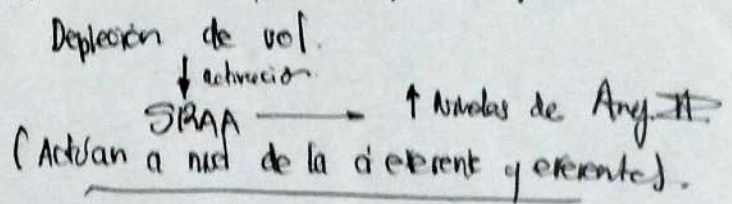 Depleción de vol.
↓ activación
SRAA → ↑ Niveles de Ang. II
(Actúan a nivel de la a eferent y eferente).